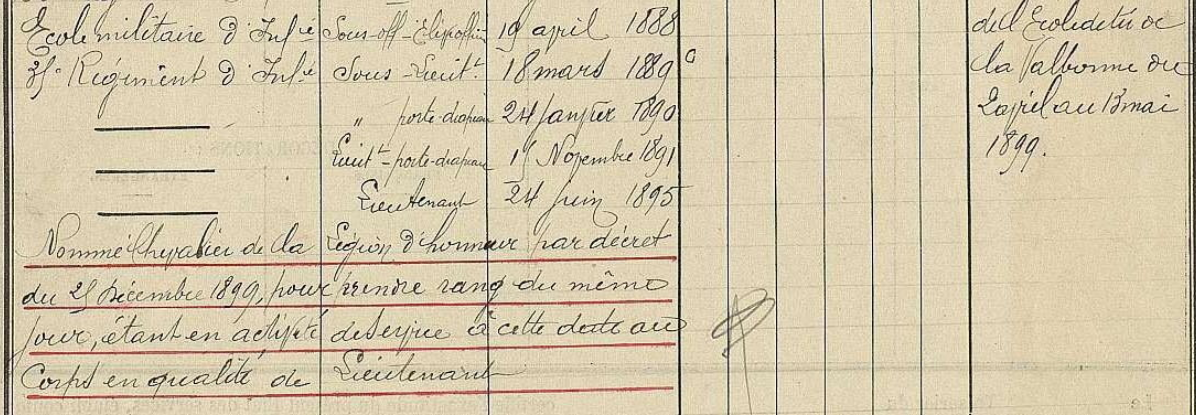 Ecole militaire d'Infie Sous-off- Elève offier 19 avril 1888
35e Régiment d'Infie Sous-Lieutt 18 mars 1889
" porte-drapeau 24 Janvier 1890
Lieutt-porte-drapeau 15 Novembre 1891
Lieutenant 24 juin 1895
Nommé Chevalier de la Légion d'honneur par décret
du 25 Décembre 1899, pour prendre rang du même
jour, étant en activité de service à cette date au
Corps en qualité de Lieutenant
de l'Ecole de tir de
la Valbonne du
2 avril au 13 mai
1899.